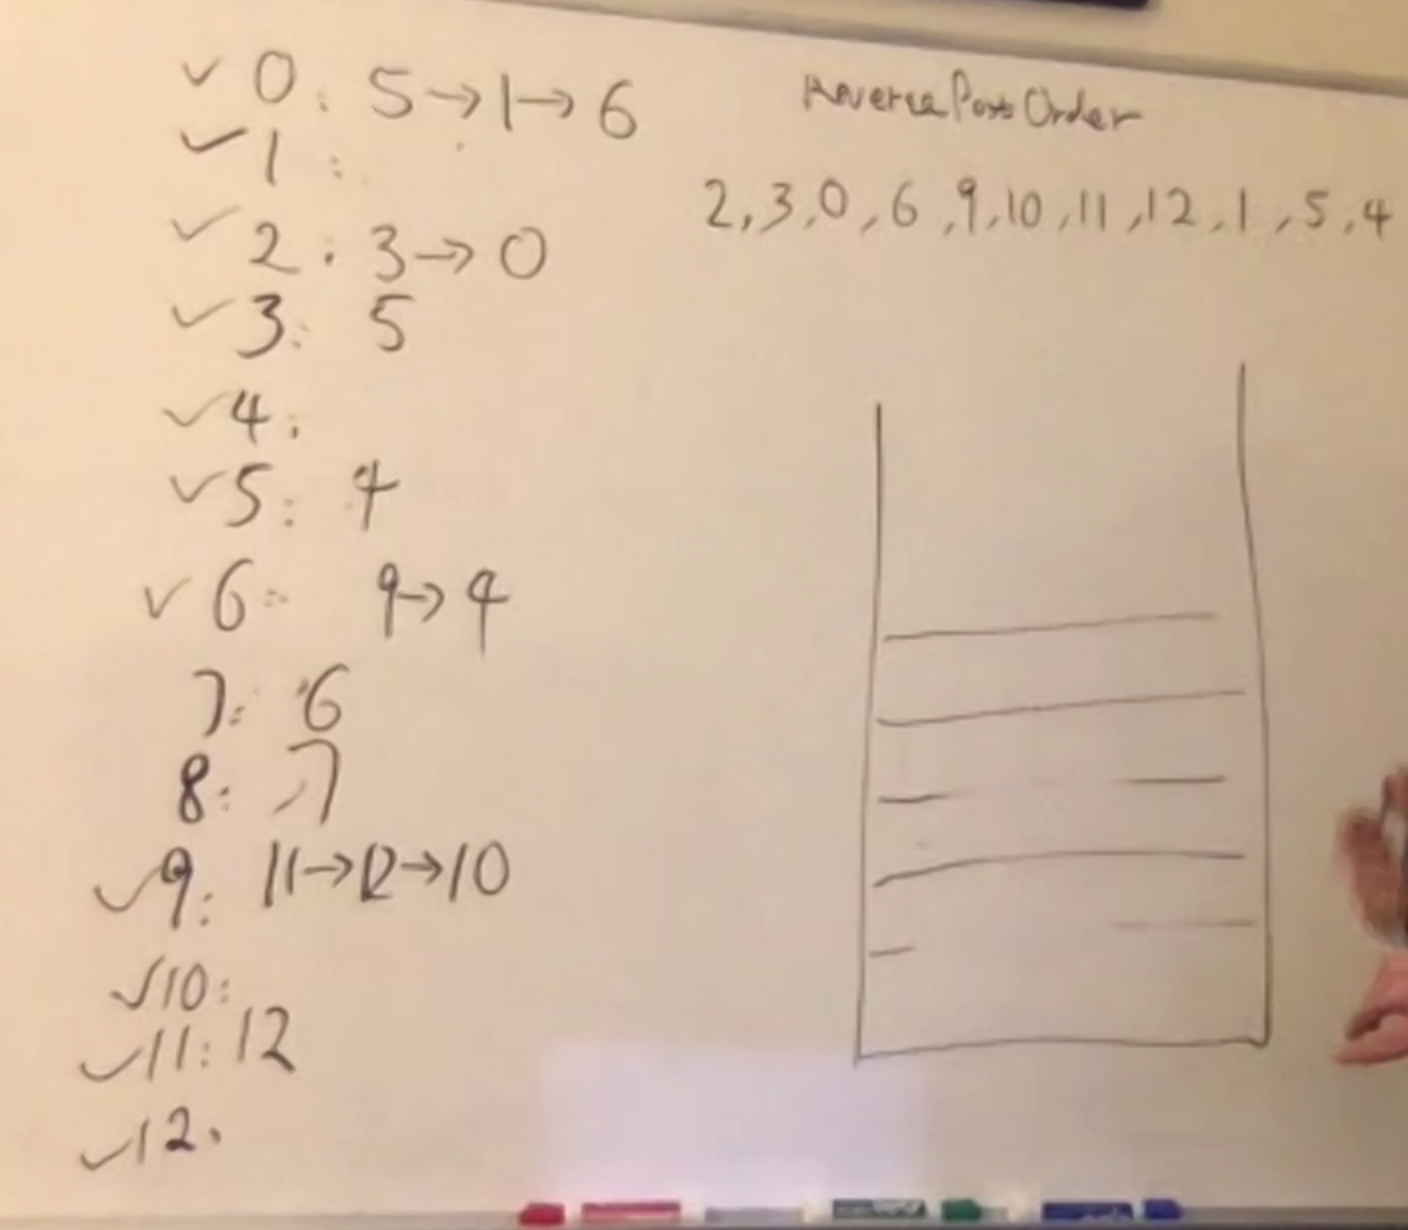 ✓ 0: 5→1→6
✓ 1:
✓ 2: 3→0
✓ 3: 5
✓ 4:
✓ 5: 4
✓ 6: 9→4
7: 6
8: 7
✓ 9: 11→12→10
✓ 10:
✓ 11: 12
✓ 12.
Reverse Post Order
2,3,0,6,9,10,11,12,1,5,4